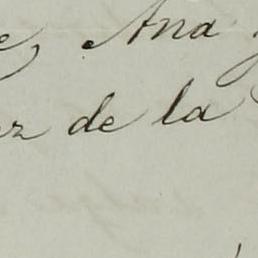 e, Ana
ez de la